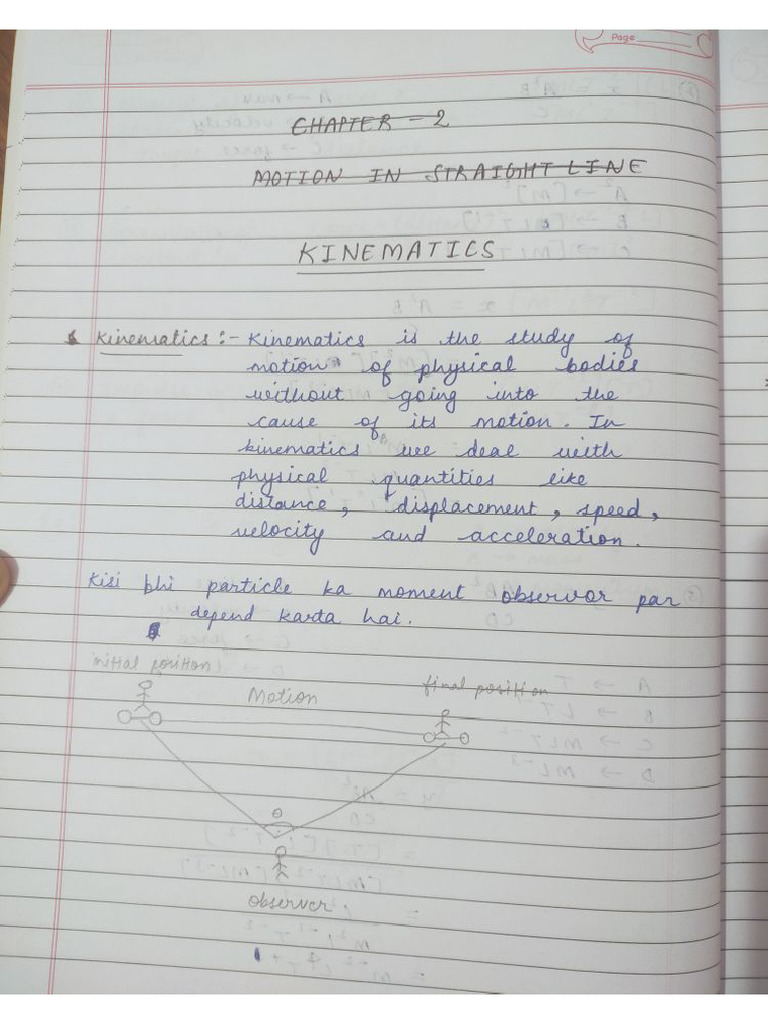 Page
CHAPTER - 2
MOTION IN STRAIGHT LINE
KINEMATICS
Kinematics :- Kinematics is the study of
motion of physical bodies
without going into the
cause of its motion. In
kinematics we deal with
physical quantities like
distance, displacement, speed,
velocity and acceleration.
Kisi bhi particle ka moment observor par
depend karta hai.
initial position
Motion
final position
observer